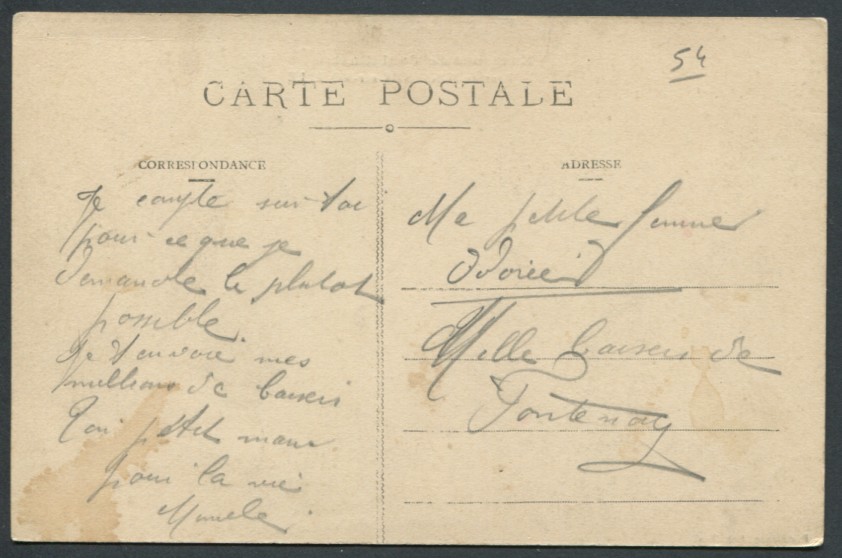 54
CARTE POSTALE
CORRESPONDANCE
Je compte sur toi
pour ce que je
demande le plutot
possible.
Je t'envoie mes
millions de baisers
Ton petit mari
pour la vie
ADRESSE
Ma petite femme
Mille baisers de
Fontenoy